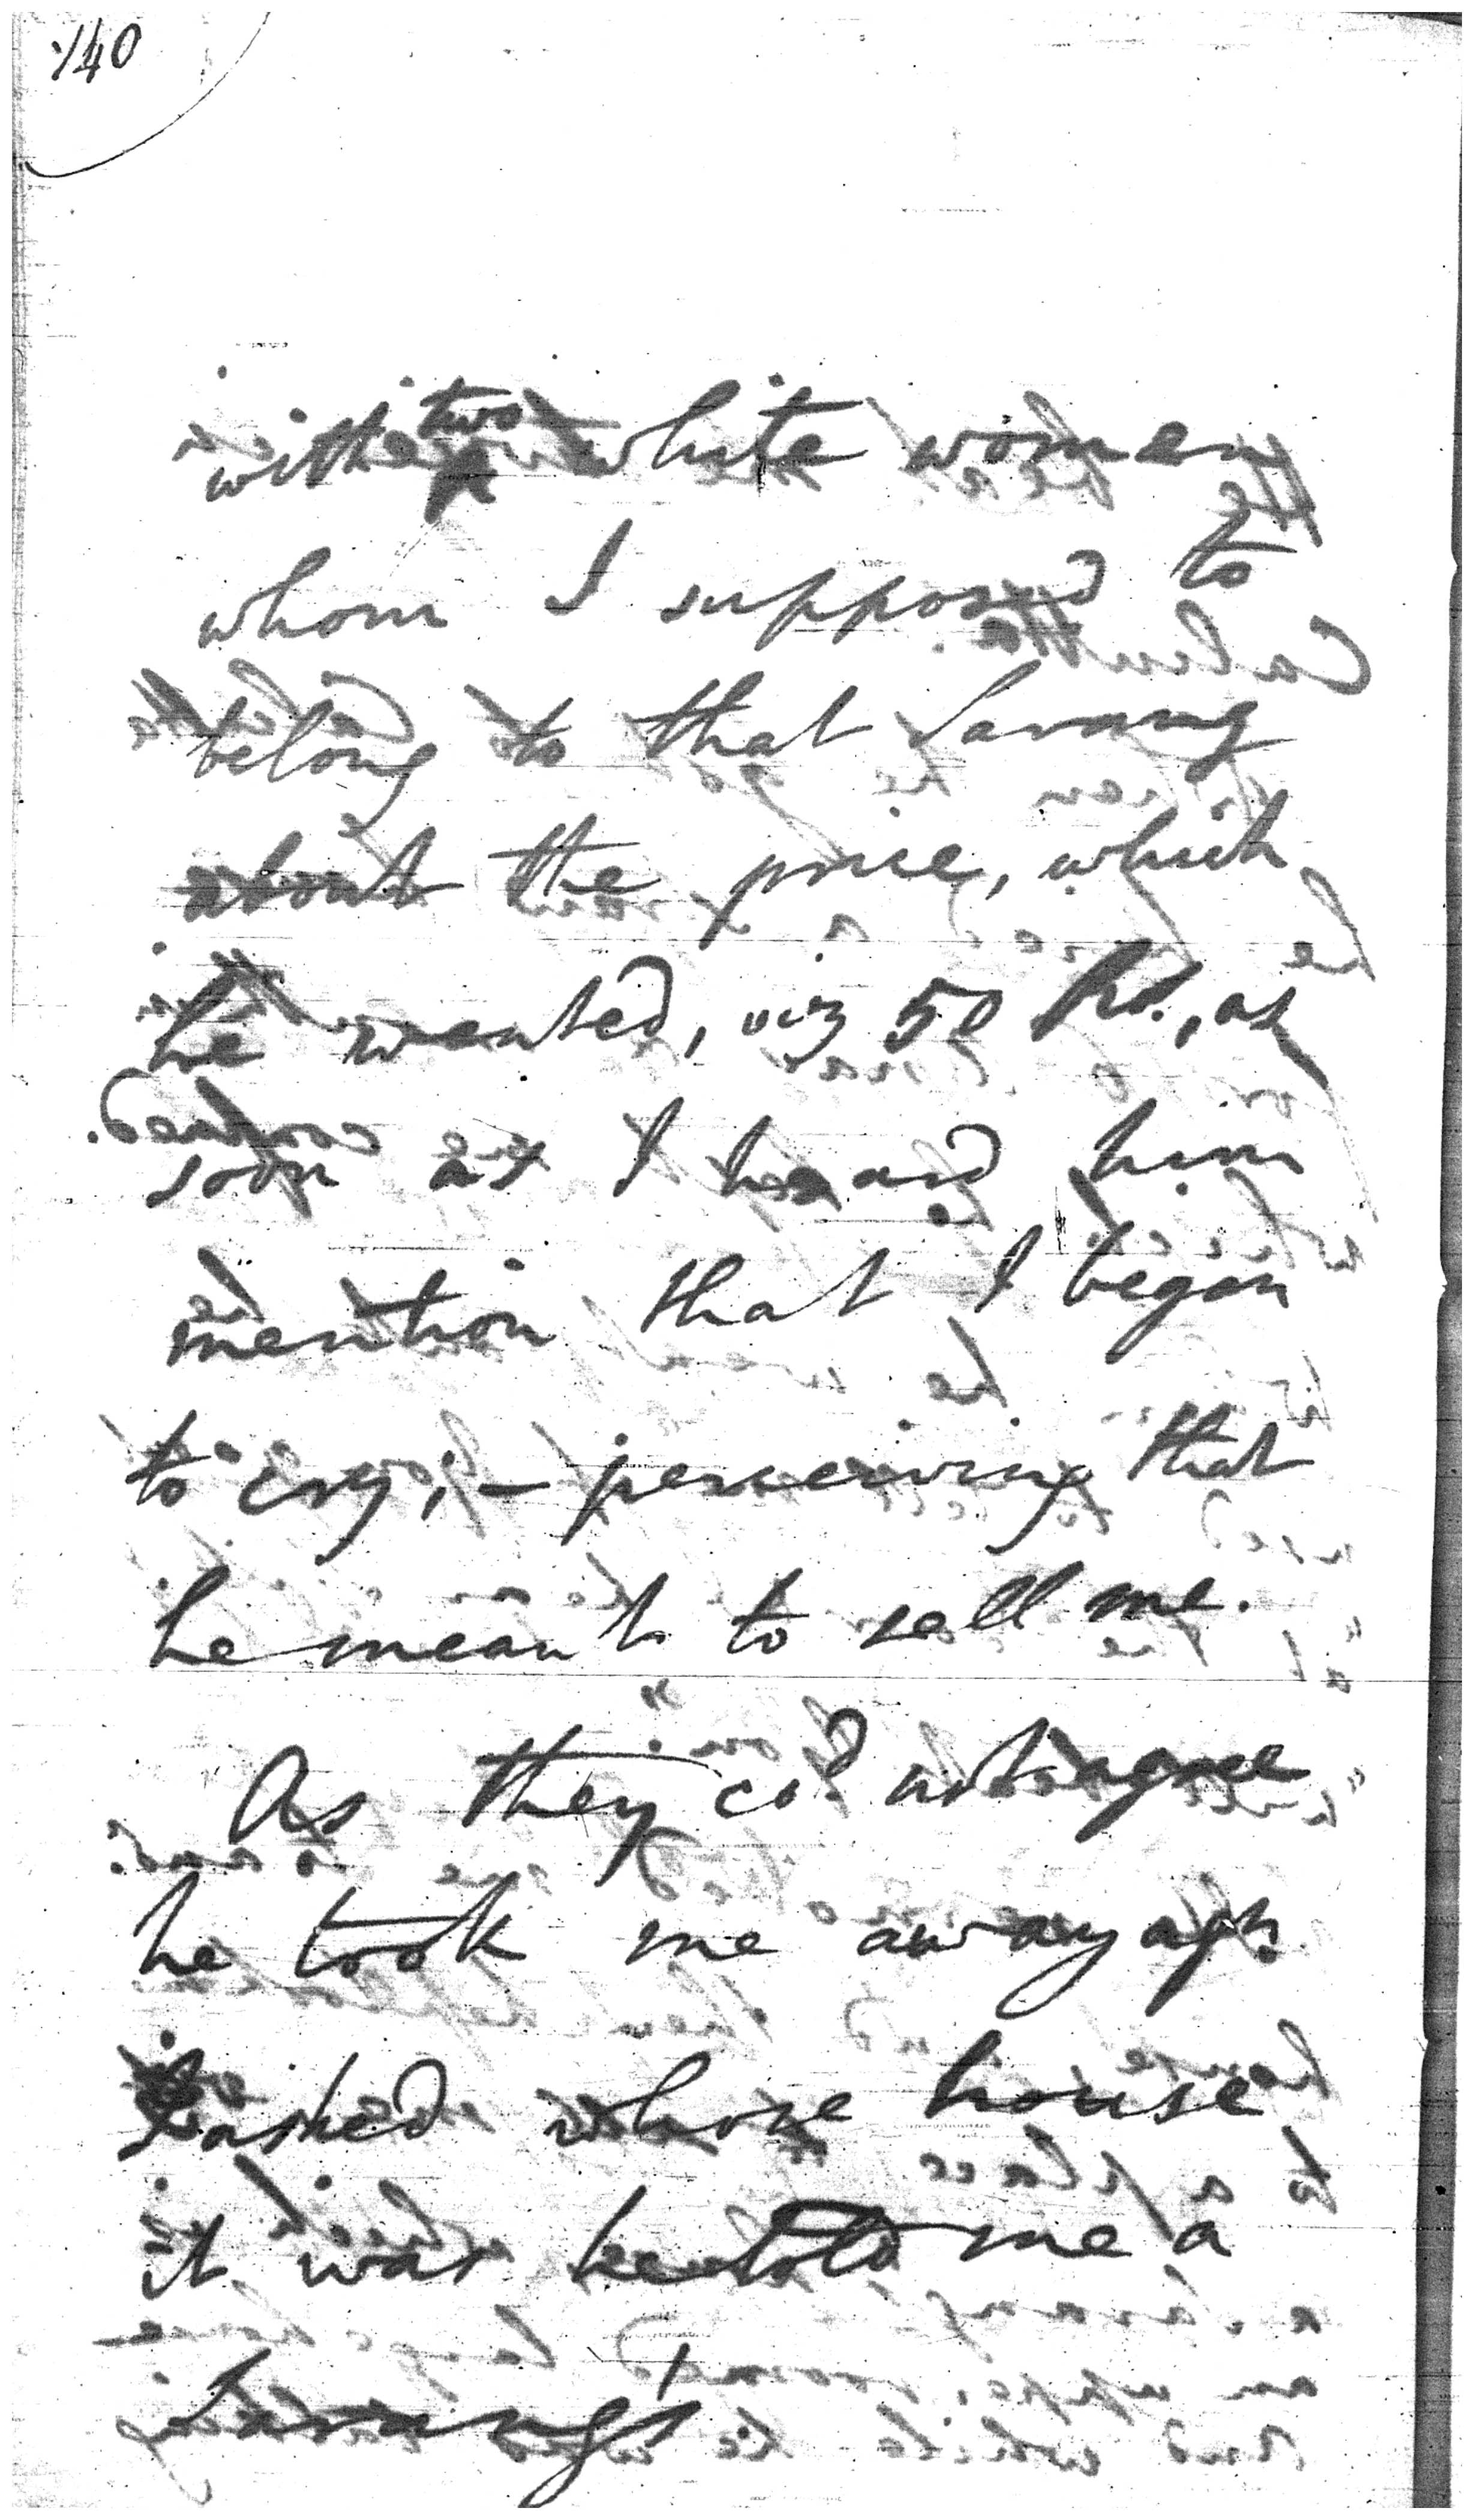 140
with two white women
whom I supposed to
belong to that Sarang
about the price, which
he wanted, viz 50 Rs., as
soon as I heard him
mention that I began
to cry; – perceiving that
he meant to sell me.
As they cod not agree
he took me away agn.
I asked whose house
it was he told me a
Sarang's